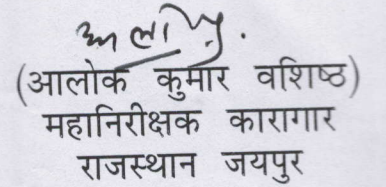 (आलोक कुमार वशिष्ठ)
महानिरीक्षक कारागार
राजस्थान जयपुर